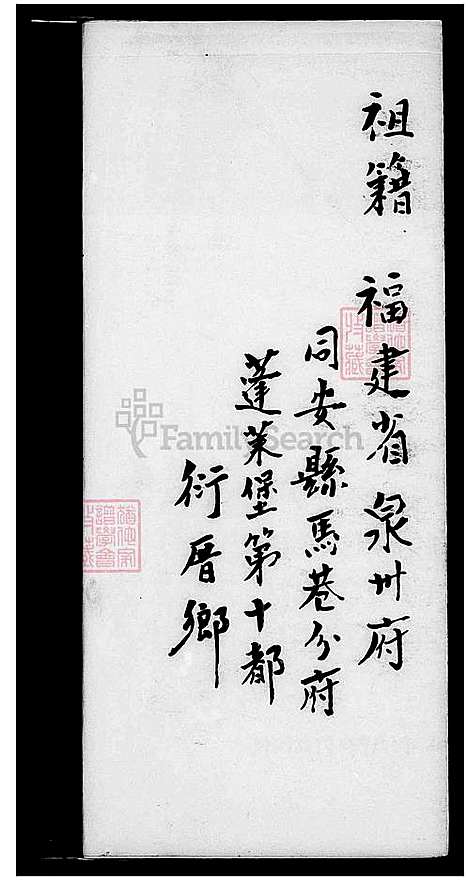 祖籍 福建省泉卅府
同安縣馬巷分府
蓬萊堡第十都
衍厝鄉
FamilySearch